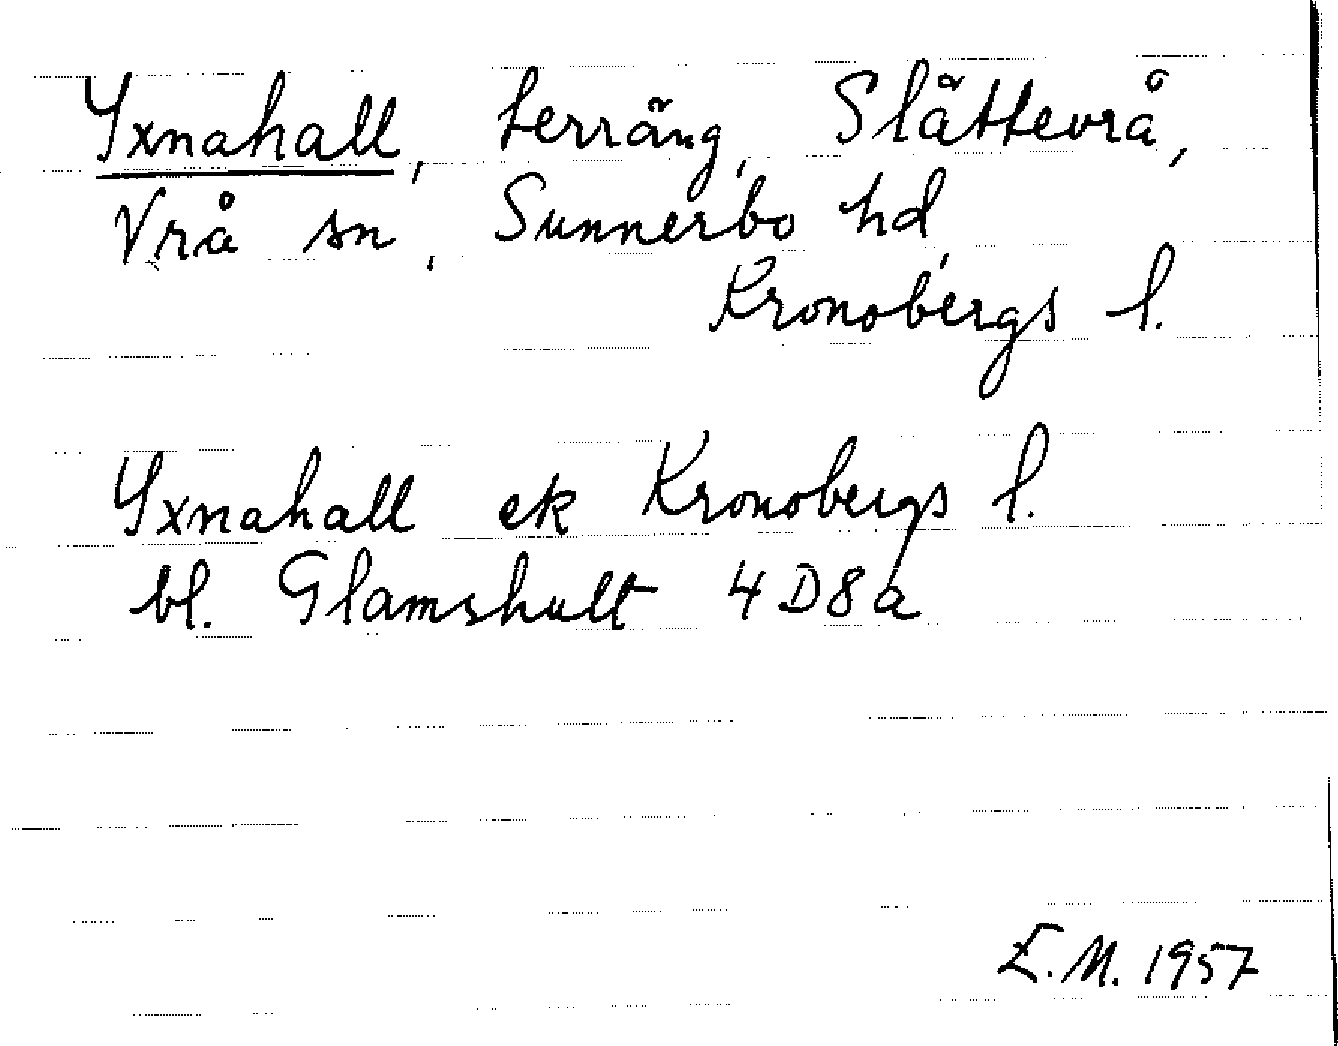 Yxnahall, terräng, Slättevrå,
Vrå sn, Sunnerbo hd,
Kronobergs l.
Yxnahall ek Kronobergs l.
bl. Glamshult 4D8a
E.M. 1957